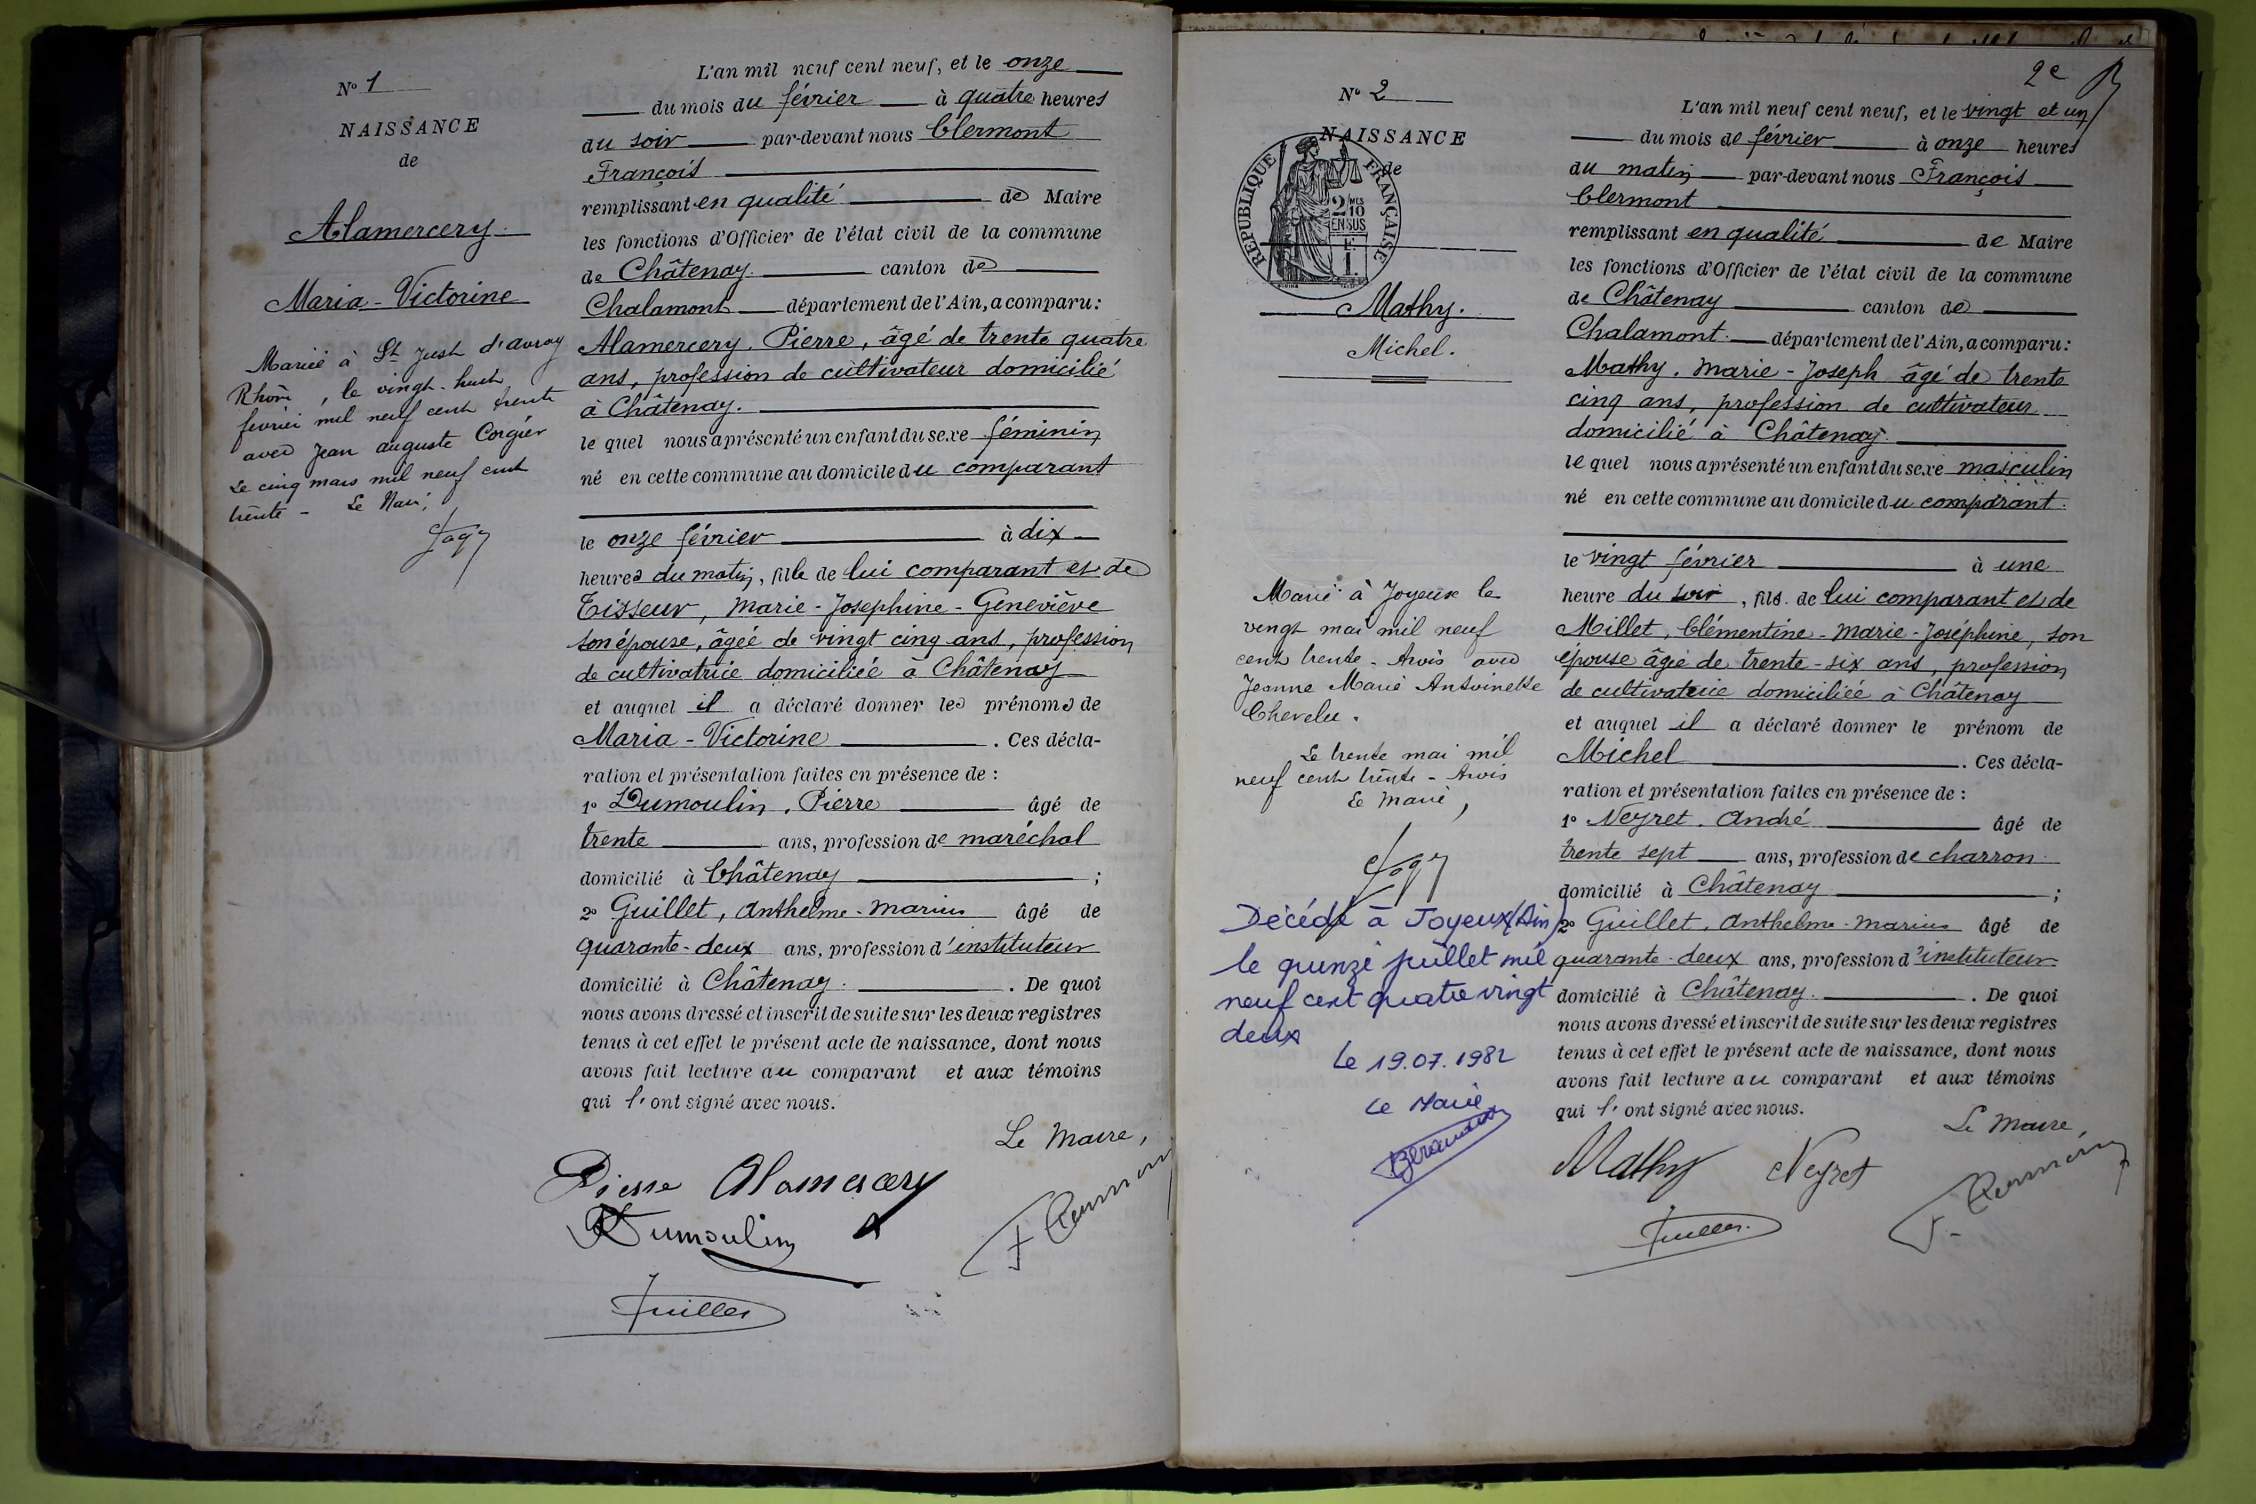 N° 1
NAISSANCE
de
Alamercery
Maria-Victorine
Mariée à St Just d'avray
Rhône, le vingt-huit
février mil neuf cent trente
avec Jean auguste Corgier
Le cinq mars mil neuf cent
trente - Le Maire,
L'an mil neuf cent neuf, et le onze
du mois du février à quatre heures
du soir par-devant nous Clermont
François
remplissant en qualité de Maire
les fonctions d'Officier de l'état civil de la commune
de Châtenay canton de
Chalamont département de l'Ain, a comparu:
Alamercery, Pierre, âgé de trente quatre
ans, profession de cultivateur domicilié
à Châtenay.
le quel nous a présenté un enfant du sexe féminin
né en cette commune au domicile du comparant
le onze février à dix
heures du matin, fille de lui comparant et de
Tisseur, Marie-Josephine-Geneviève
son épouse, âgée de vingt cinq ans, profession
de cultivatrice domiciliée à Châtenay
et auquel il a déclaré donner les prénoms de
Maria-Victorine. Ces décla-
ration et présentation faites en présence de :
1° Dumoulin, Pierre âgé de
trente ans, profession de maréchal
domicilié à Châtenay ;
2° Guillet, Anthelme-Marius âgé de
quarante-deux ans, profession d'instituteur
domicilié à Châtenay. De quoi
nous avons dressé et inscrit de suite sur les deux registres
tenus à cet effet le présent acte de naissance, dont nous
avons fait lecture au comparant et aux témoins
qui l'ont signé avec nous.
Le Maire,
Pierre Alamercery
Dumoulin
Guillet
2e
N° 2
NAISSANCE
de
REPUBLIQUE FRANÇAISE
2/10 MES
EN SUS
1 F.
Mathy.
Michel.
Marié à Joyeux le
vingt mai mil neuf
cent trente-trois avec
Jeanne Marie Antoinette
Chevelu.
Le trente mai mil
neuf cent trente-trois
Le Maire,
Décédé à Joyeux (Ain)
le quinze juillet mil
neuf cent quatre vingt
deux
Le 19.07.1982
Le Maire
L'an mil neuf cent neuf, et le vingt et un
du mois de février à onze heures
du matin par-devant nous François
Clermont
remplissant en qualité de Maire
les fonctions d'Officier de l'état civil de la commune
de Châtenay canton de
Chalamont. département de l'Ain, a comparu:
Mathy, Marie-Joseph âgé de trente
cinq ans, profession de cultivateur
domicilié à Châtenay.
le quel nous a présenté un enfant du sexe masculin
né en cette commune au domicile du comparant.
le vingt février à une
heure du soir, fils de lui comparant et de
Millet, Clémentine-Marie-Joséphine, son
épouse âgée de trente-six ans, profession
de cultivatrice domiciliée à Châtenay
et auquel il a déclaré donner le prénom de
Michel. Ces décla-
ration et présentation faites en présence de :
1° Neyret, André âgé de
trente sept ans, profession de charron
domicilié à Châtenay ;
2° Guillet, Anthelme-Marius âgé de
quarante-deux ans, profession d'instituteur
domicilié à Châtenay. De quoi
nous avons dressé et inscrit de suite sur les deux registres
tenus à cet effet le présent acte de naissance, dont nous
avons fait lecture au comparant et aux témoins
qui l'ont signé avec nous.
Le Maire,
Mathy Neyret
Guillet